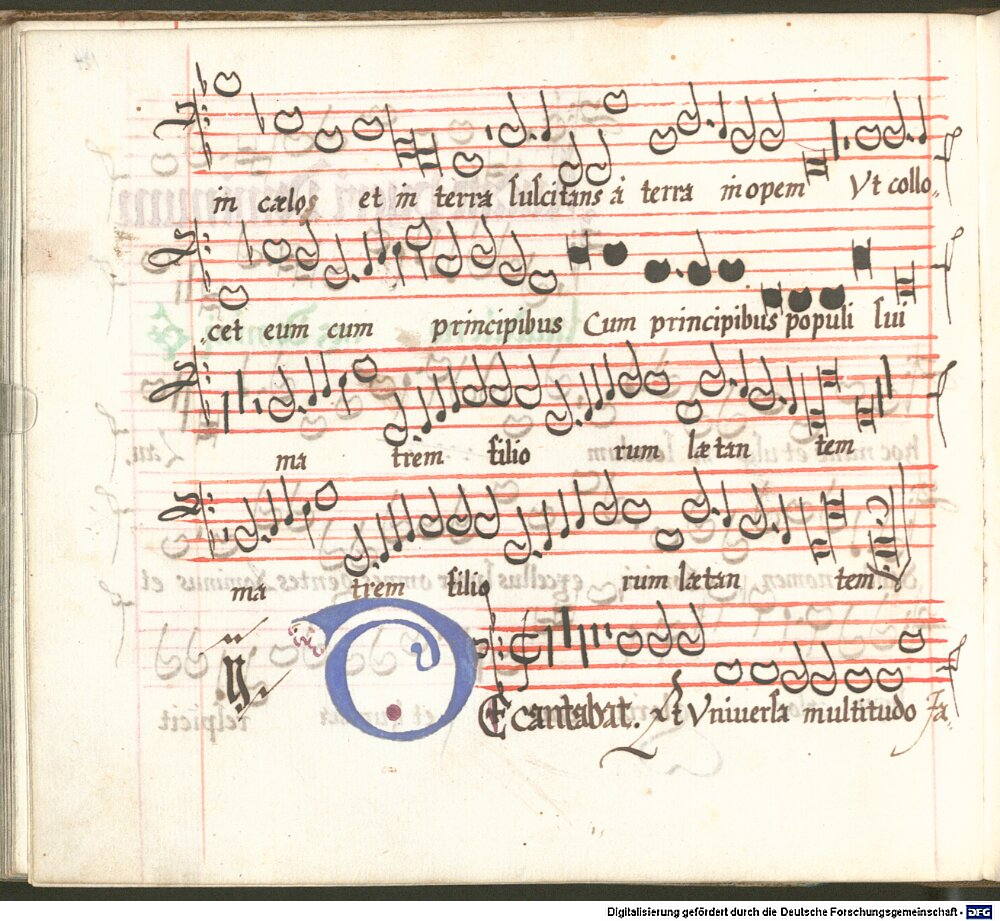 in cælos et in terra suscitans à terra inopem Vt collo,,
,,cet eum cum principibus Cum principibus populi sui
ma trem filio rum lætan tem
ma trem filio rum lætan tem.
ij.
DEcantabat. Et Vniuersa multitudo Ja
Digitalisierung gefördert durch die Deutsche Forschungsgemeinschaft - DFG